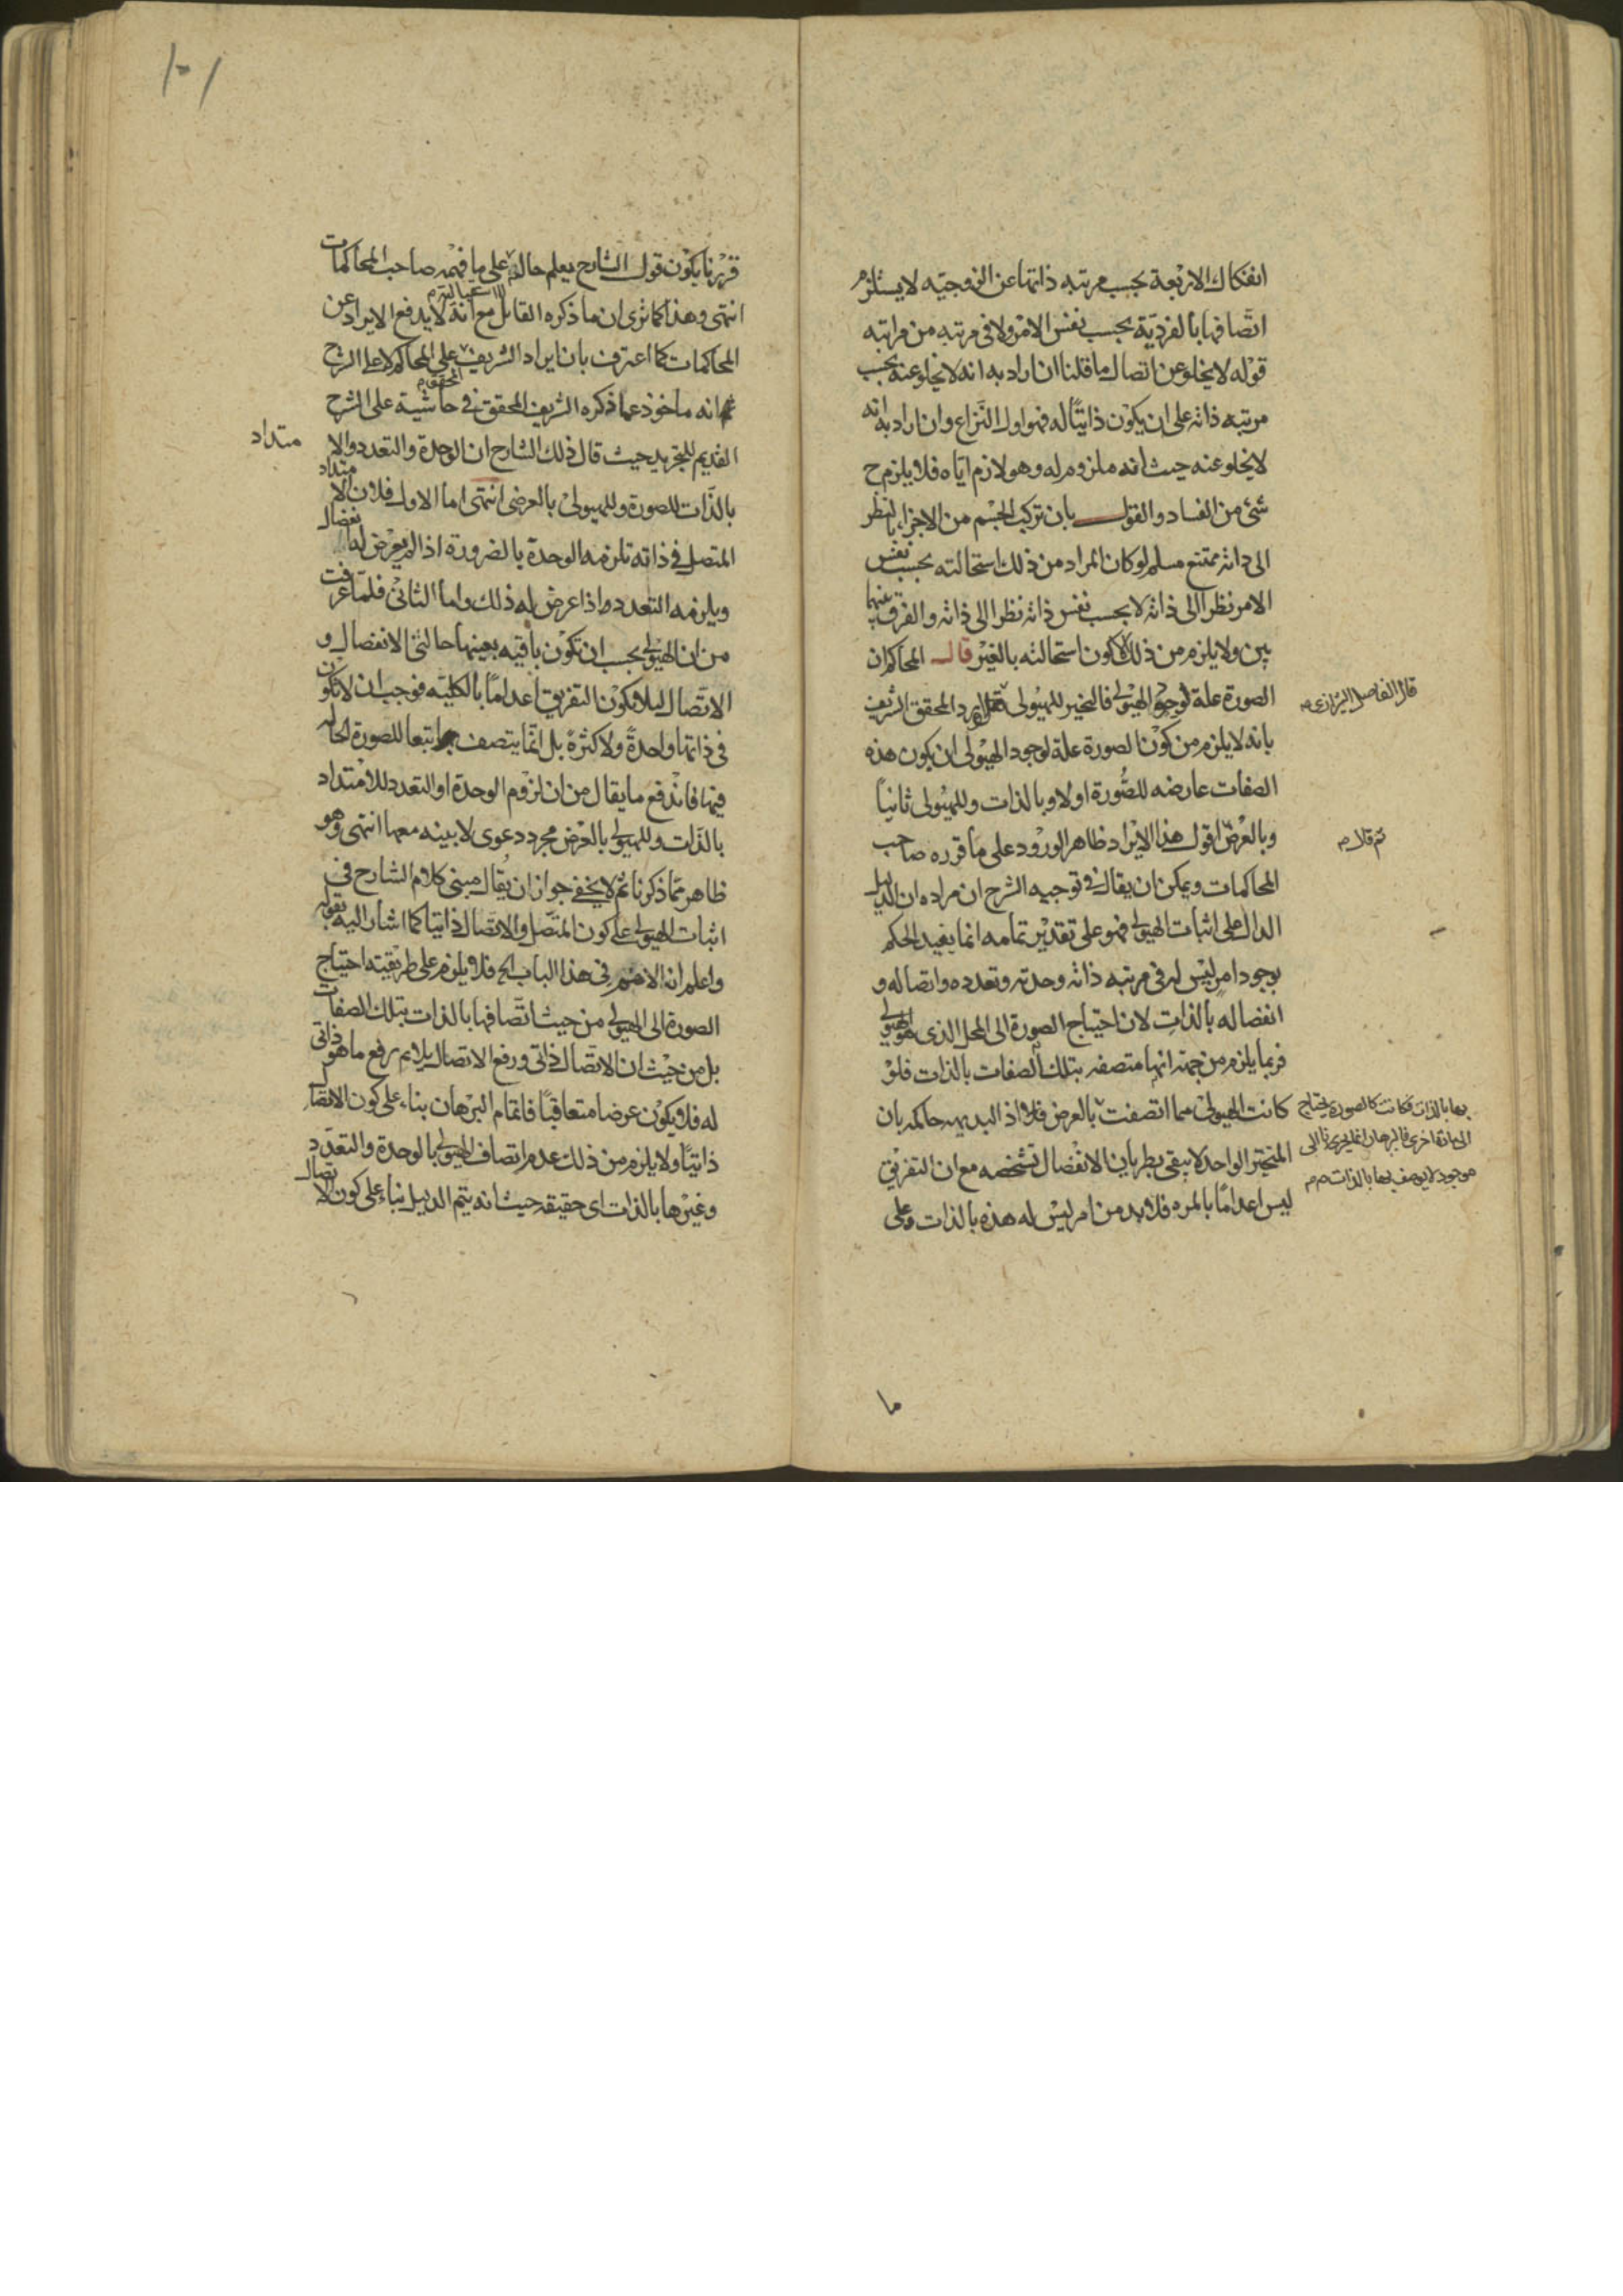 انفكاك الاربعة بحسب مرتبه ذاتها عن الزوجيه لا يستلزم
اتصافها بالفردية بحسب نفس الامر ولا فى مرتبه من مراتبه
قوله لا يخلو عن اتصال ما قلنا ان اراد به انه لا يخلو عنه بحسب
مرتبه ذاته على ان يكون ذاتيا له فهو اول النزاع وان اراد به انه
لا يخلو عنه حيث انه ملزوم له وهو لازم اياه فلا يلزم ح
شئ من الفساد والقول بان تركب الجسم من الاجزاء بالنظر
الى ذاته ممتنع مسلم لو كان المراد من ذلك استحالته بحسب نفس
الامر نظرا الى ذاته لا بحسب نفس ذاته نظرا الى ذاته والفرق بينهما
بين ولا يلزم من ذلك كون استحالته بالغير قال المحاكم ان
الصورة علة لوجود الهيولى فالتحيز للهيولى اورد المحقق الشريف
قال الفاضل الشيرازى م
بانه لا يلزم من كون الصورة علة لوجود الهيولى ان يكون هذه
الصفات عارضه للصورة اولا وبالذات وللهيولى ثانيا
وبالعرض اقول هذا الايراد ظاهر الورود على ما قرره صاحب
المحاكمات ويمكن ان يقال فى توجيه الشرح ان مراده ان الدليل
الدال على اثبات الهيولى فهو على تقدير تمامه انما يفيد الحكم
بوجود امر ليس له فى مرتبه ذاته وحدته وتعدده واتصاله و
انفصاله بالذات لان احتياج الصورة الى المحل الذى هو الهيولى
فربما يلزم من جهة انها متصفه بتلك الصفات بالذات فلو
كانت الهيولى مما اتصفت بالعرض فلا اذ البديهه حاكمه بان
بها بالذات فكانت كالصورة يحتاج
الى مادة اخرى فالبرهان انما يجرى نا الى
موجود لا يوصف بها بالذات م م
المتحيز الواحد لا يبقى بطريان الانفصال تشخصه مع ان التفريق
ليس اعداما بالمره فلا بد من امر ليس له هذه بالذات وعلى
ما
قررنا يكون قول الشارح يعلم حاله على ما فهمه صاحب المحاكمات
انتهى وهذا كما ترى ان ما ذكره القائل مع انه لا يدفع الايراد عن
المحاكمات كما اعترف بان ايراد الشريف على المحاكم لا على الشرح
انه ماخوذ عما ذكره الشريف المحقق فى حاشية على الشرح
القديم للتجريد حيث قال ذلك الشارح ان الوحدة والتعدد والا
متداد
بالذات للصورة وللهيولى بالعرض انتهى اما الاول فلان الامتداد
المتصل فى ذاته تلزمه الوحدة بالضرورة اذا لم يعرض له انفصال
ويلزمه التعدد اذا عرض له ذلك واما الثانى فلما عرفت
من ان الهيولى يجب ان تكون باقيه بعينها حالتى الانفصال و
الاتصال ليلا يكون التفريق اعداما بالكليه فوجب ان لا تكون
فى ذاتها واحدة ولا كثرة بل انما يتصف بهما تبعا للصورة الحاله
فيها فاندفع ما يقال من ان لزوم الوحدة او التعدد للامتداد
بالذات وللهيولى بالعرض مجرد دعوى لا بينه معها انتهى وهو
ظاهر مما ذكرنا ثم لا يخفى جواز ان يقال مبنى كلام الشارح فى
اثبات الهيولى على كون المتصل والاتصال ذاتيا كما اشار اليه بقوله
واعلم انه الاهم فى هذا الباب الخ فلا يلزم على طريقته احتياج
الصورة الى الهيولى من حيث اتصافها بالذات بتلك الصفات
بل من حيث ان الاتصال ذاتى ورفع الاتصال يلازم رفع ما هو ذاتى
له فلا يكون عرضا متعاقبا فاتمام البرهان بناء على كون الاتصال
ذاتيا ولا يلزم من ذلك عدم اتصاف الهيولى بالوحدة والتعدد
وغيرها بالذات اى حقيقه حيث انه يتم الدليل بناء على كون الاتصال